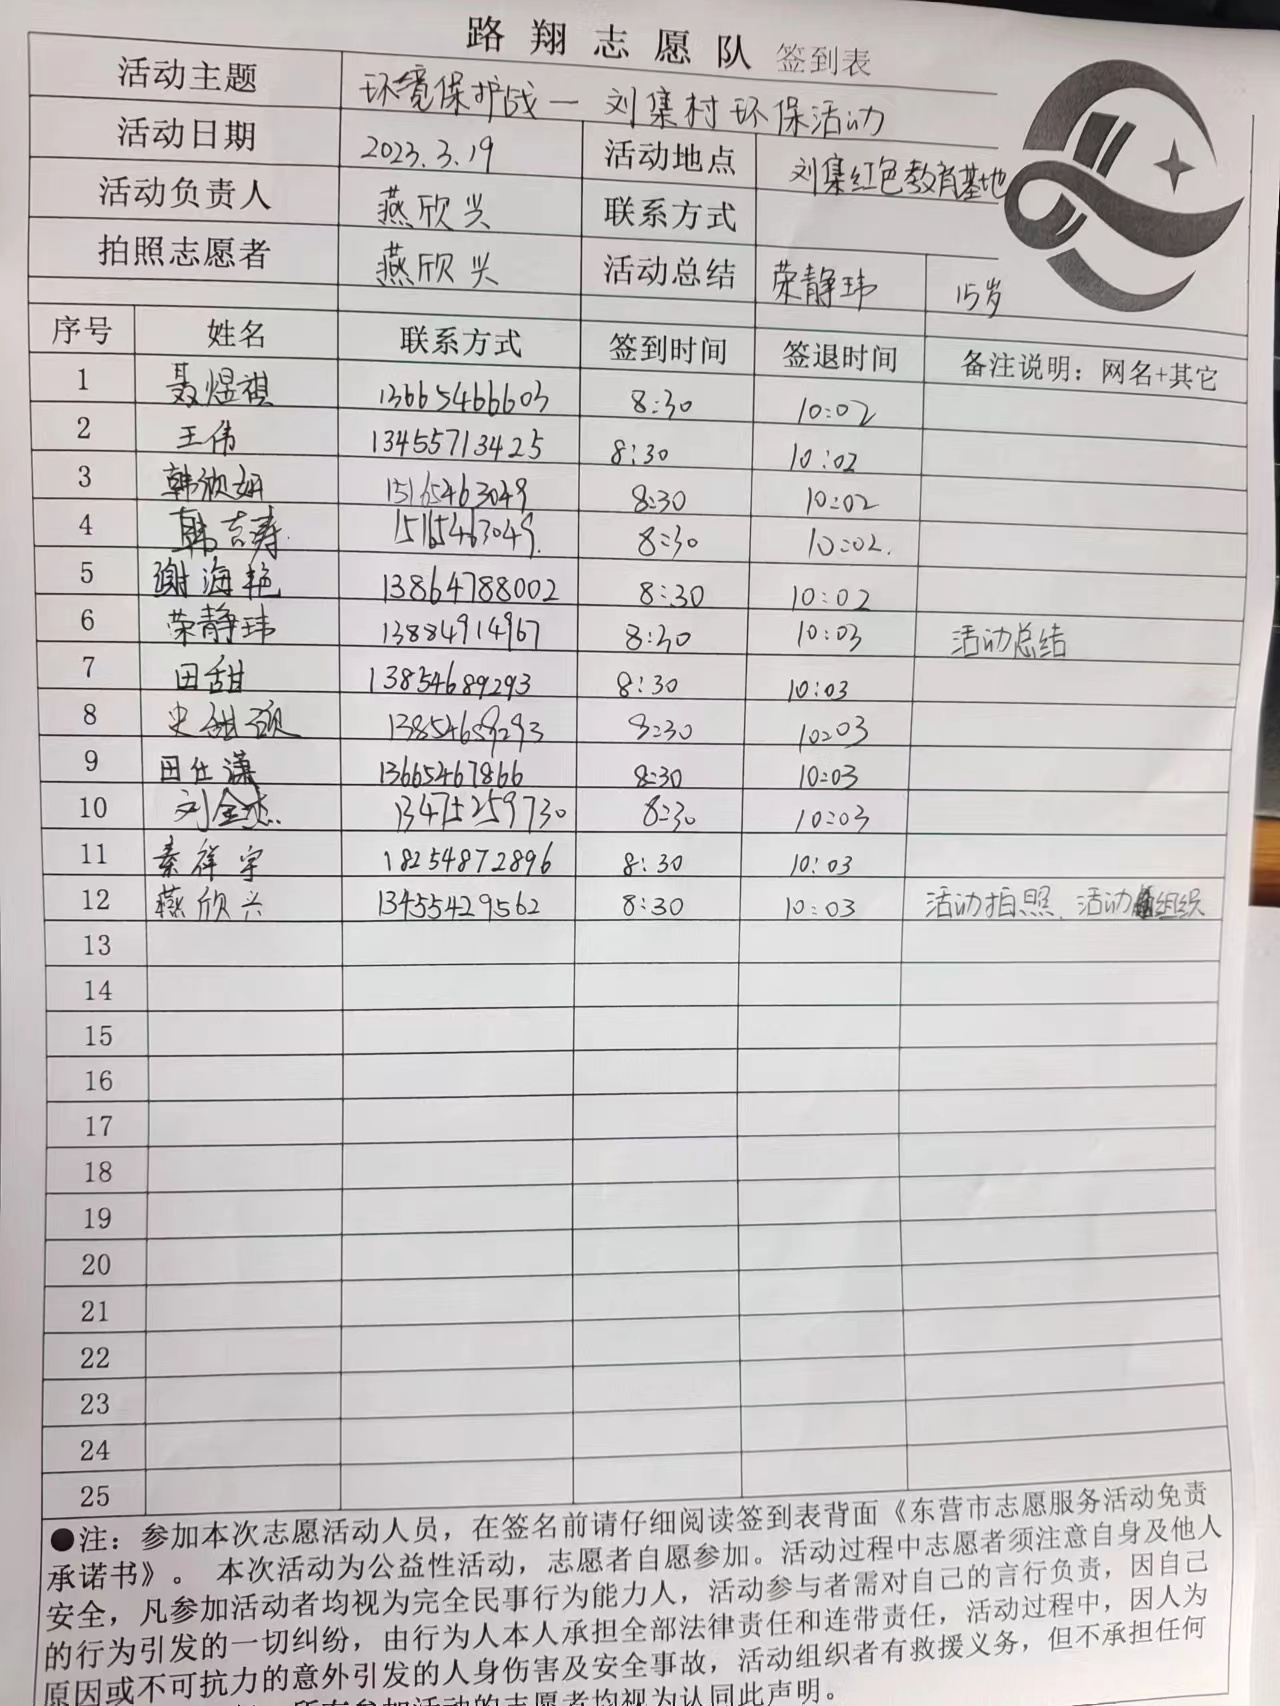 路翔志愿队 签到表
活动主题 环境保护战一刘集村环保活动
活动日期 2023.3.19 活动地点 刘集红色教育基地
活动负责人 燕欣兴 联系方式
拍照志愿者 燕欣兴 活动总结 荣静玮 15岁
序号 姓名 联系方式 签到时间 签退时间 备注说明：网名+其它
1 聂煜祺 13665466603 8:30 10:02
2 王伟 13455713425 8:30 10:02
3 韩欣妍 15165463049 8:30 10:02
4 韩吉寿 15165463049. 8:30 10:02.
5 谢海艳 13864788002 8:30 10:02
6 荣静玮 13884914967 8:30 10:03 活动总结
7 田甜 13854689293 8:30 10:03
8 史 13854689293 8:30 10:03
9 田仕潇 13665467866 8:30 10:03
10 刘金杰 13475259730 8:30 10:03
11 秦祥宇 18254872896 8:30 10:03
12 燕欣兴 13455429562 8:30 10:03 活动拍照、活动组织
13
14
15
16
17
18
19
20
21
22
23
24
25
●注：参加本次志愿活动人员，在签名前请仔细阅读签到表背面《东营市志愿服务活动免责
承诺书》。 本次活动为公益性活动，志愿者自愿参加。活动过程中志愿者须注意自身及他人
安全，凡参加活动者均视为完全民事行为能力人，活动参与者需对自己的言行负责，因自己
的行为引发的一切纠纷，由行为人本人承担全部法律责任和连带责任，活动过程中，因人为
原因或不可抗力的意外引发的人身伤害及安全事故，活动组织者有救援义务，但不承担任何
所有参加活动的志愿者均视为认同此声明。